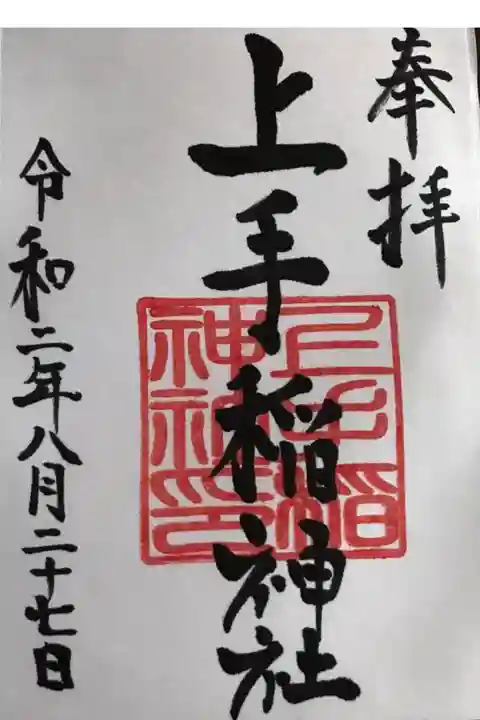 奉拝
上手稲神社
上手稲
神社印
令和二年八月二十七日